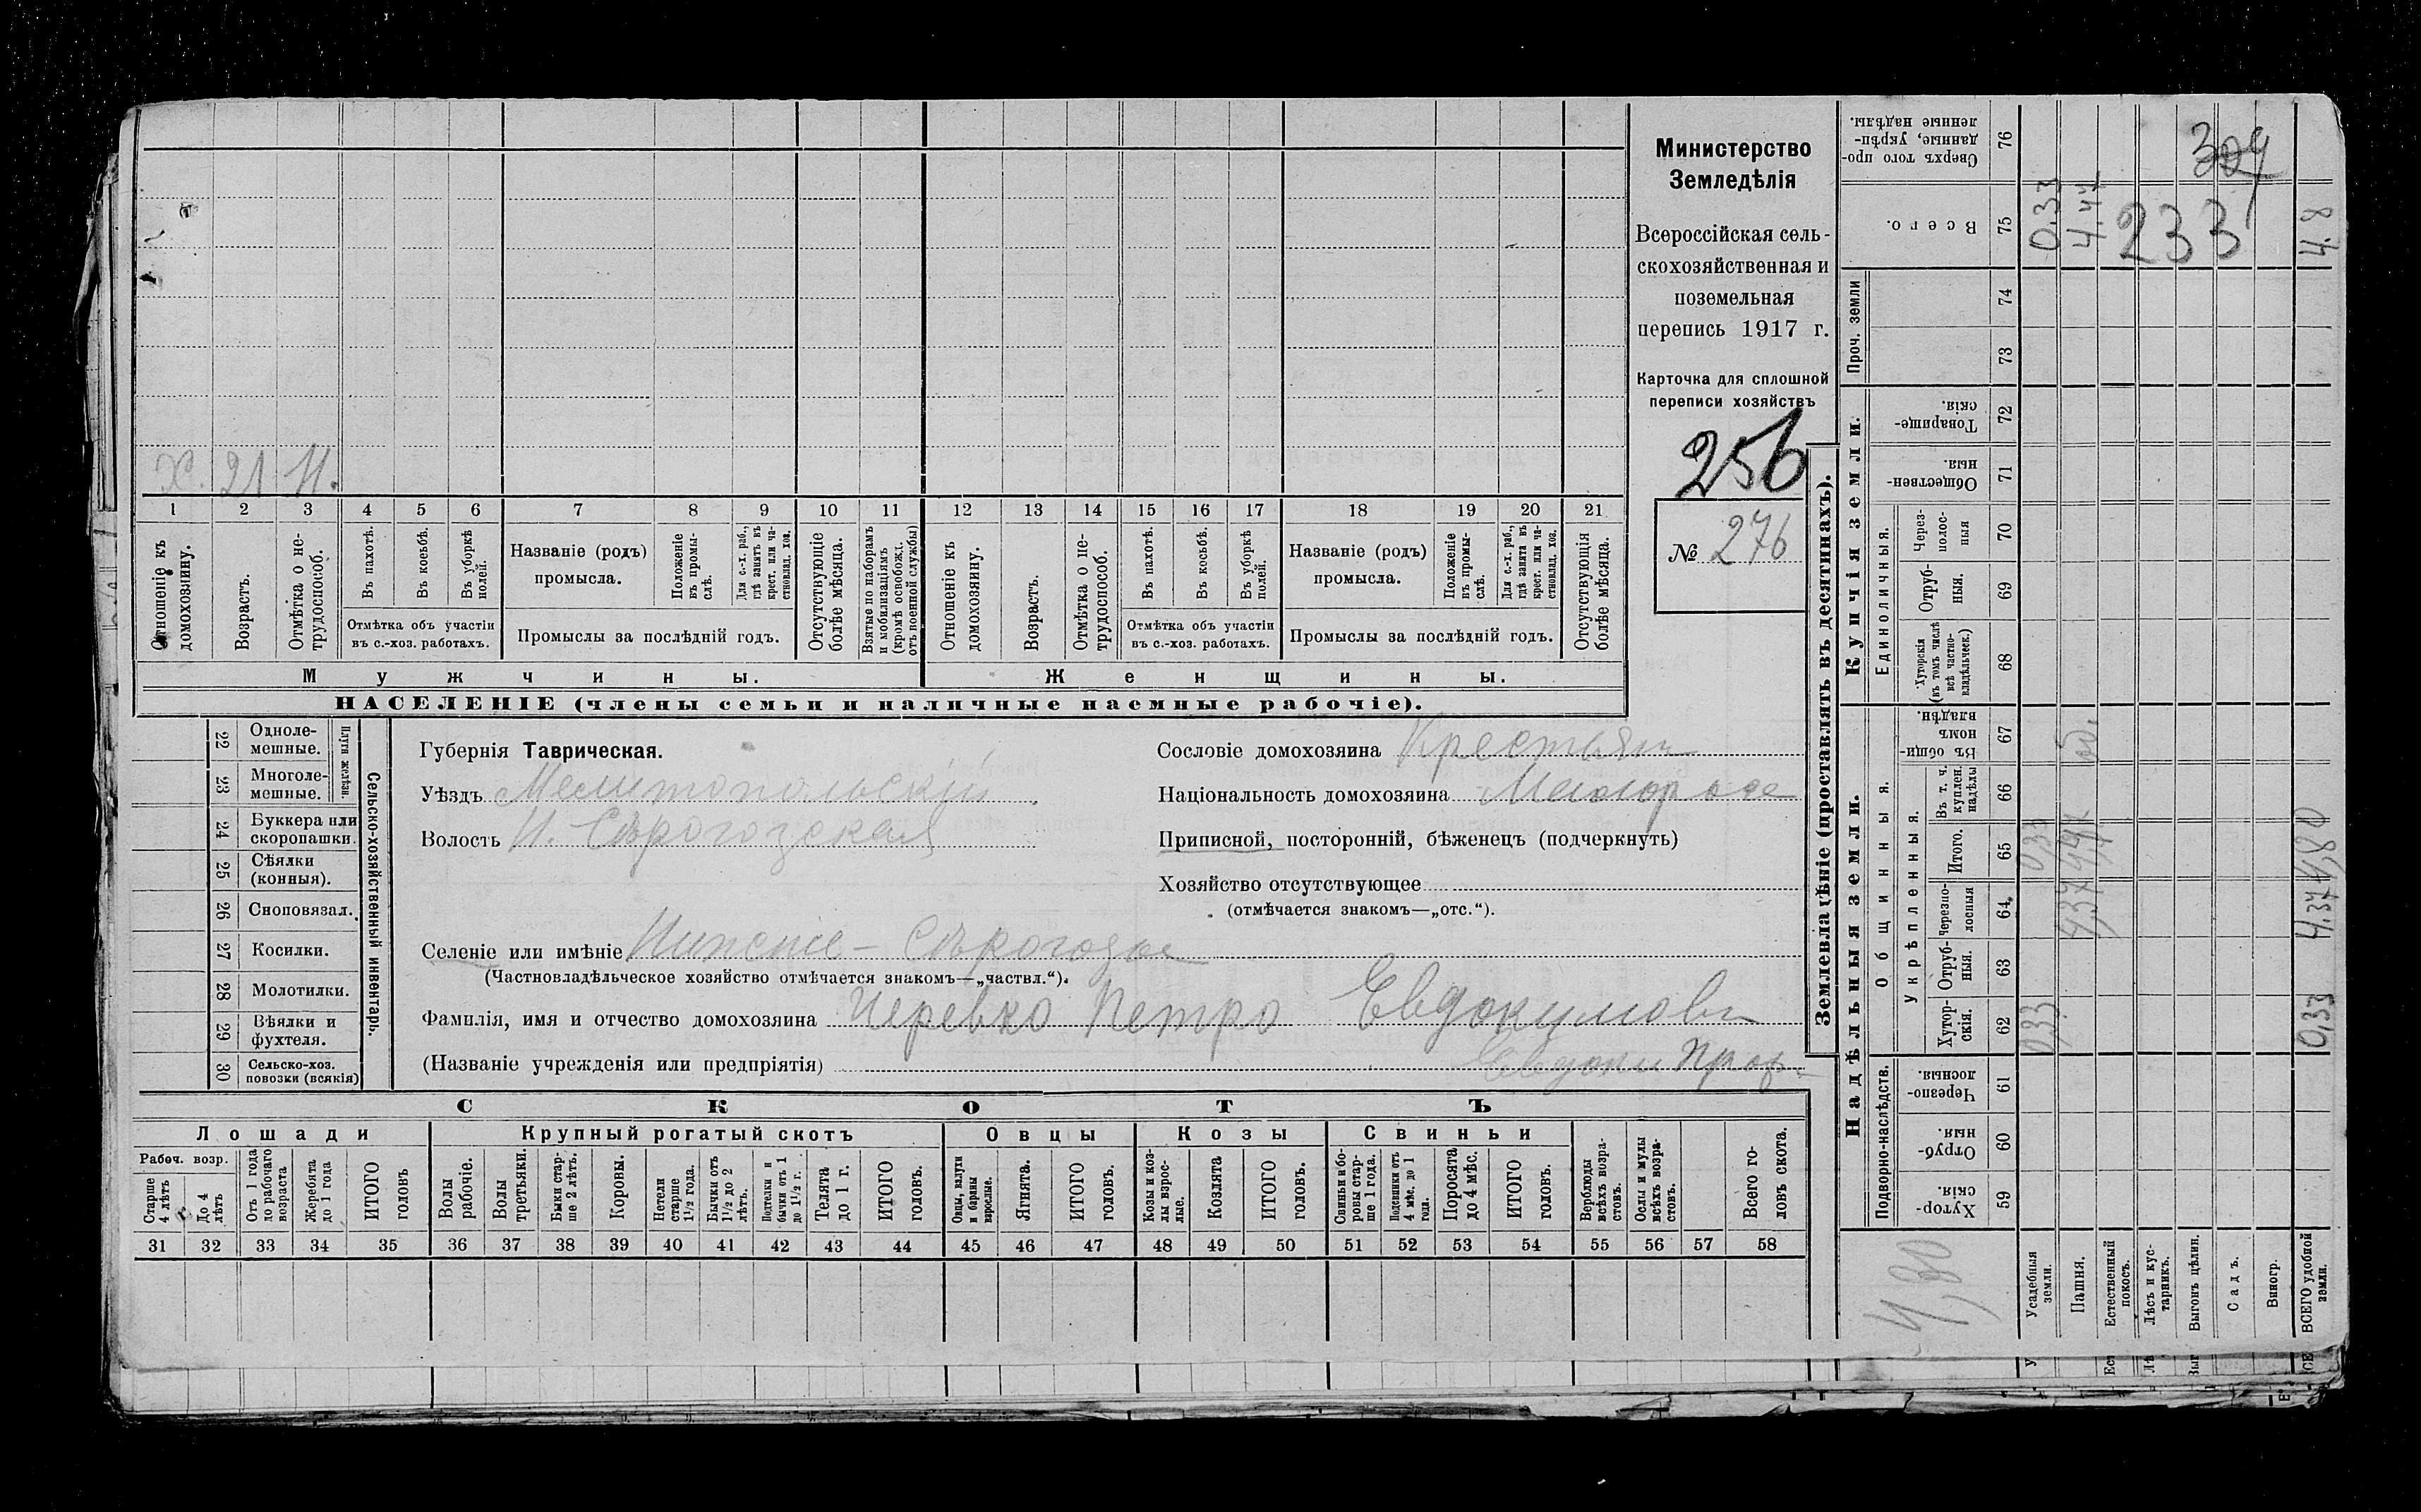 Х. 21 Н.
1 2 3 4 5 6 7 8 9 10 11 12 13 14 15 16 17 18 19 20 21
Отношеніе къ домохозяину.
Возрастъ.
Отмѣтка о не-
трудоспособ.
Въ пахотѣ.
Въ косьбѣ.
Въ уборкѣ полей.
Отмѣтка объ участіи
въ с.-хоз. работахъ.
Названіе (родъ)
промысла.
Положеніе
въ промы-
слѣ.
Для с.-х. раб.,
гдѣ занятъ въ
крест. или ча-
стновлад. хоз.
Промыслы за послѣдній годъ.
Отсутствующіе
болѣе мѣсяца.
Взятые по наборамъ
и мобилизаціямъ
(кромѣ освобожд.
отъ военной службы)
Отношеніе къ
домохозяину.
Возрастъ.
Отмѣтка о не-
трудоспособ.
Въ пахотѣ.
Въ косьбѣ.
Въ уборкѣ
полей.
Отмѣтка объ участіи
въ с.-хоз. работахъ.
Названіе (родъ)
промысла.
Положеніе
въ промы-
слѣ.
Для с.-х. раб.,
гдѣ занята въ
крест. или ча-
стновлад. хоз.
Промыслы за послѣдній годъ.
Отсутствующія
болѣе мѣсяца.
Мужчины.
Женщины.
НАСЕЛЕНІЕ (члены семьи и наличные наемные рабочіе).
Министерство
Земледѣлія
Всероссійская сель-
скохозяйственная и
поземельная
перепись 1917 г.
Карточка для сплошной
переписи хозяйствъ
256
№ 276
22 Одноле-
мешные.
23 Многоле-
мешные.
Плуги желѣзн.
24 Буккера или
скоропашки.
25 Сѣялки
(конныя).
26 Сноповязал.
27 Косилки.
28 Молотилки.
29 Вѣялки и
фухтеля.
30 Сельско-хоз.
повозки (всякія)
Сельско-хозяйственный инвентарь.
Губернія Таврическая.
Уѣздъ Мелитопольскій
Волость Н. Сѣрогозская
Селеніе или имѣніе Нижніе-Сѣрогозы
(Частновладѣльческое хозяйство отмѣчается знакомъ—„частвл.“).
Фамилія, имя и отчество домохозяина Черевко Петро Евдокимовъ
(Названіе учрежденія или предпріятія)
Сословіе домохозяина Крестьян
Національность домохозяина
Приписной, посторонній, бѣженецъ (подчеркнуть)
Хозяйство отсутствующее
(отмѣчается знакомъ—„отс.“).
СКОТЪ
Лошади
Рабоч. возр.
Старше
4 лѣтъ
До 4
лѣтъ
Отъ 1 года
до рабочаго
возраста
Жеребята
до 1 года
ИТОГО
головъ
Крупный рогатый скотъ
Волы
рабочіе.
Волы
третьяки.
Быки стар-
ше 2 лѣтъ.
Коровы.
Нетели
старше
1½ года.
Бычки отъ
1½ до 2
лѣтъ.
Подтелки и
бычки отъ 1
до 1½ г.
Телята
до 1 г.
ИТОГО
головъ.
Овцы
Овцы, валухи
и бараны
взрослые.
Ягнята.
ИТОГО
головъ.
Козы
Козы и коз-
лы взрос-
лые.
Козлята
ИТОГО
головъ.
Свиньи
Свиньи и бо-
ровы стар-
ше 1 года.
Подсвинки отъ
4 мѣс. до 1
года.
Поросята
до 4 мѣс.
ИТОГО
головъ.
Верблюды
всѣхъ возра-
стовъ.
Ослы и мулы
всѣхъ возра-
стовъ.
Всего го-
ловъ скота.
31 32 33 34 35 36 37 38 39 40 41 42 43 44 45 46 47 48 49 50 51 52 53 54 55 56 57 58
Землевладѣніе (проставлять въ десятинахъ).
Надѣльныя земли.
Подворно-наслѣдств.
Хутор-
скія. 59
Отруб-
ныя. 60
Черезпо-
лосныя. 61
Общинныя.
Укрѣпленныя.
Хутор-
скія. 62
Отруб-
ныя. 63
Черезпо-
лосныя 64
Итого. 65
Въ т. ч.
куплен.
надѣлы 66
Въ общи-
номъ
владѣн. 67
Купчія земли.
Единоличныя.
Хуторскія
(въ томъ числѣ
всѣ частно-
владѣльческ.) 68
Отруб-
ныя. 69
Через-
полос-
ныя 70
Обществен-
ныя. 71
Товарище-
скія. 72
Проч. земли
73
74
Всего. 75
Сверхъ того про-
данные, укрѣп-
ленные надѣлы. 76
Усадебныя
земли.
0,33 0,33 0,33
Пашня.
4,47
Естественный
покосъ.
Лѣсъ и кус-
тарникъ.
Выгонъ цѣлин.
Садъ.
Виногр.
ВСЕГО удобной
земли.
0,33 4,80 4.8
233
4,80